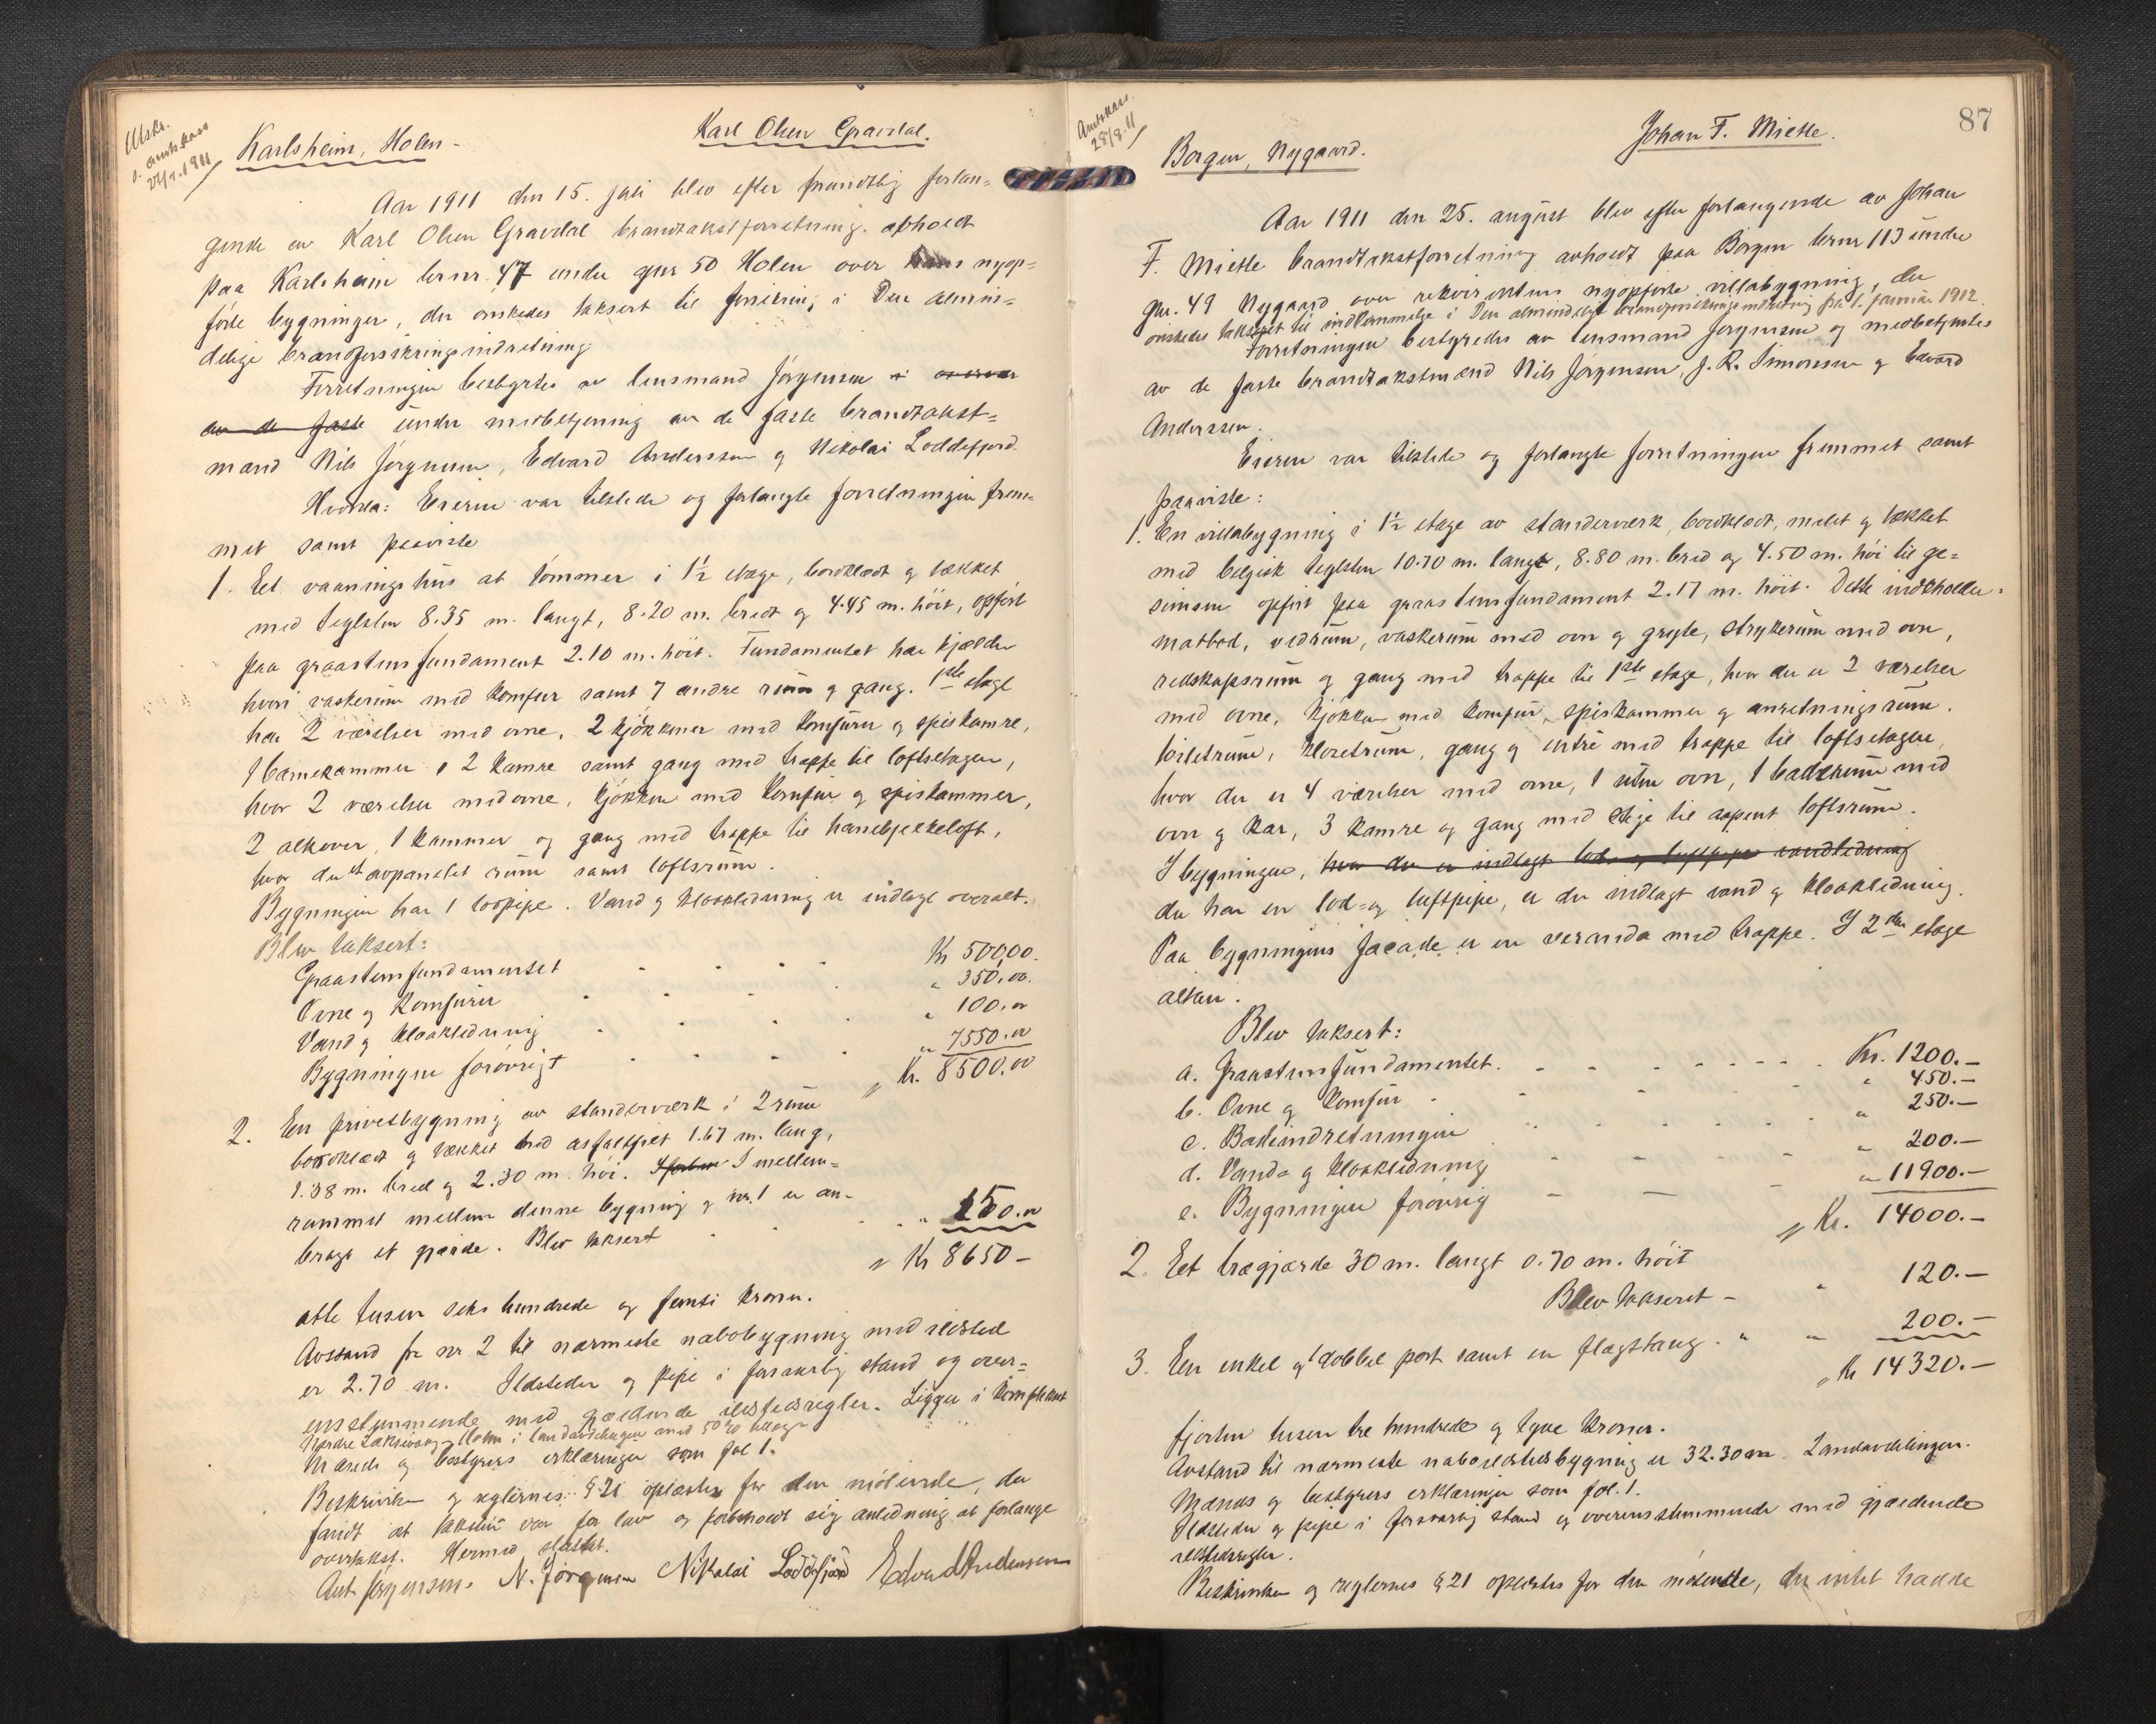 Utskr.
s. amtskass
22/7.1911
Karlsheim, Holen -
Karl Olsen Gravdal.
Aar 1911 den 15. juli blev efter mundtlig forlan=
gende av Karl Olsen Gravdal brandtakstforretning avholdt
paa Karlsheim brnr. 47 under gnr 50 Holen over hans nyop=
førte bygninger, der ønskedes taksert til forsikring i Den almin=
delige brandforsikringsindretning
Forretningen bestyrtes av lensmand Jørgensen
av de faste under medbetjening av de faste brandtakst=
mænd Nils Jørgensen, Edvard Anderssen og Nikolai Loddefjord.
Hvorda: Eieren var tilstede og forlangte forretningen frem=
met samt paaviste
1. Eet vaaningshus at tømmer i 1½ etage, bordklædt og tækket
med teglsten 8.35 m. langt, 8.20 m. bredt og 4.45 m. høit, opført
paa graastensfundament 2.10 m. høit. Fundamentet har kjælder
hvori vaskerum med komfur samt 7 andre rum og gang. 1ste etage
har 2 værelser med ovne, 2 kjøkkener med komfurer og spiskamre,
1 barnekammer, 2 kamre samt gang med trappe til loftsetagen,
hvor 2 værelser med ovne, kjøkken med komfur og spiskammer,
2 alkover, 1 kammer og gang med trappe til hanebjelkeloft,
hvor der et avpanelet rum samt loftsrum.
Bygningen har 1 lodpipe. Vand og kloakledning er indlagt overalt.
Blev taksert:
Graastensfundamentet Kr 500.00.
Ovne og komfurer " 350.00.
Vand og kloakledning " 100.00
Bygningen forøvrigt " 7550.00
Kr. 8500.00
2. En privetbygning av standerværk i 2 rum
bordklædt og tækket med asfaltfilt 1.67 m. lang,
1.38 m. bred og 2.30 m. høi. I mellem=
rummet mellem denne bygning og nr. 1 er an-
bragt et gjærde. Blev taksert " 150.00
Kr 8650 -
otte tusen seks hundrede og femti kroner.
Avstand fra nr 2 til nærmeste nabobygning med ildsted
er 2.70 m. Ildsteder og pipe i forsvarlig stand og over=
ensstemmende med gjældende ildstedsregler. Ligger i komplekset
Nordre Laksevaag-Holen i landavdelingen med 50% tillæg
Mænds og bestyrers erklæringer som fol 1.
Beskrivelsen og reglernes § 21 oplæstes for den møtende, der
fandt at taksten var for lav og forbeholdt sig anledning at forlange
overtakst. Hermed sluttet.
Ant Jørgensen. N. Jørgensen Nikolai Loddefjord Edvard Andersen
87
Amtskass.
28/8.11
Borgen, Nygaard.
Johan F. Mietle.
Aar 1911 den 25. august blev efter forlangende av Johan
F. Mietle brandtakstforretning avholdt paa Borgen brnr 113 under
gnr. 49 Nygaard over rekvirentens nyopførte villabygning, der
ønskedes taksert til indlemmelse i Den almindelige brandforsikringsindretning fra 1. januar 1912.
Forretningen bestyredes av lensmand Jørgensen og medbetjentes
av de faste brandtakstmænd Nils Jørgensen, J. R. Simonsen og Edvard
Anderssen.
Eieren var tilstede og forlangte forretningen fremmet samt
paaviste:
1. En villabygning i 1½ etage av standerværk, bordklædt, malet og tækket
med belgisk teglsten 10.70 m. langt, 8.80 m. bred og 4.50 m. høi til ge=
simsen opført paa graastensfundament 2.17 m. høit. Dette indeholder:
matbod, vedrum, vaskerum med ovn og gryte, strykerum med ovn,
redskapsrum og gang med trappe til 1ste etage, hvor der er 2 værelser
med ovne, kjøkken med komfur, spiskammer og anretningsrum.
toiletrum, klosetrum, gang og entré med trappe til loftsetagen,
hvor der er 4 værelser med ovne, 1 uten ovn, 1 baderum med
ovn og kar, 3 kamre og gang med stige til aapent loftsrum.
I bygningen, hvor der er indlagt lod- og luftpipe vandledning
der har en lod- og luftpipe, er der indlagt vand og kloakledning.
Paa bygningens facade er en veranda med trappe. I 2den etage
altan.
Blev taksert:
a. Graastensfundamentet. Kr. 1200.-
b. Ovne og komfur " 450.-
c. Badeindretningen 250.-
d. Vand- og kloakledning " 200.-
e. Bygningen forøvrig " 11900.-
Kr. 14000.-
2. Eet trægjærde 30 m. langt 0.70 m. høit
Blev taksert - " 120.-
3. En enkel og 1 dobbel port samt en flagstang. " " 200.-
Kr 14320.-
fjorten tusen tre hundrede og tyve kroner.
Avstand til nærmeste naboildstedsbygning er 32.30 m. Landavdelingen.
Mænds og bestyrers erklæringer som fol. 1.
Ildsteder og pipe i forsvarlig stand og overensstemmende med gjældende
ildstedsregler.
Beskrivelsen og reglernes § 21 oplæstes for den møtende, der intet hadde